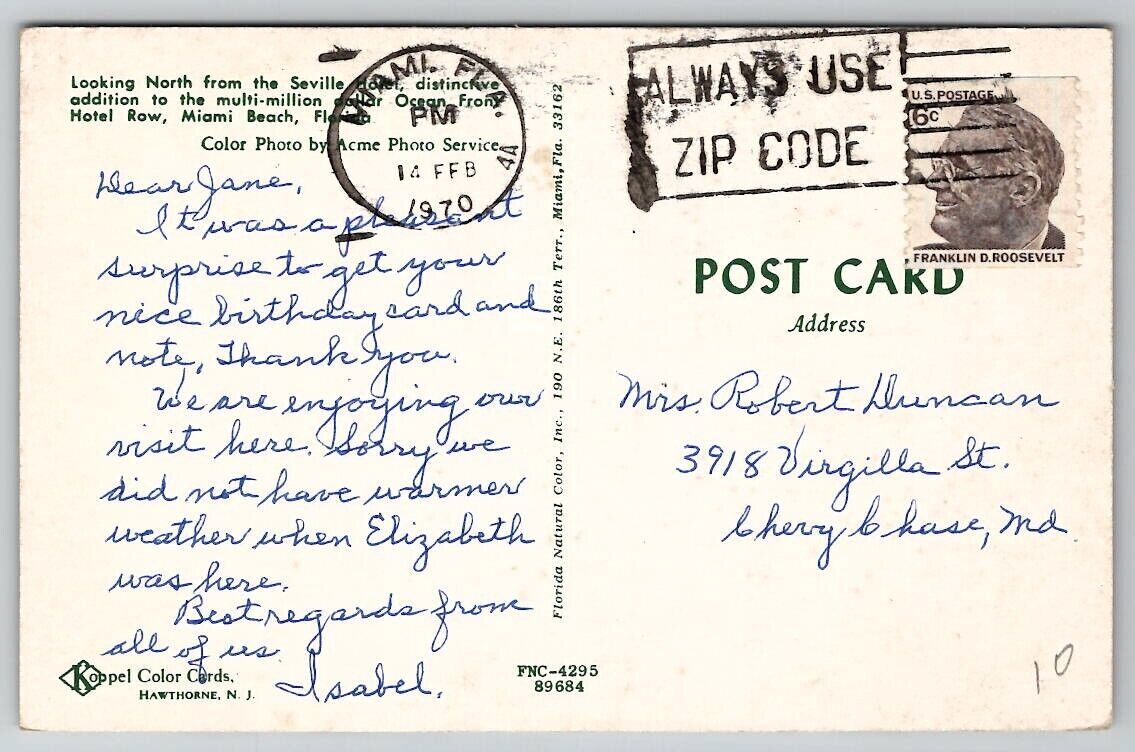 Looking North from the Seville Hotel, distinctive
addition to the multi-million dollar Ocean Front
Hotel Row, Miami Beach, Florida
Color Photo by Acme Photo Service
Dear Jane,
It was a pleasant
surprise to get your
nice birthday card and
note, Thank you.
We are enjoying our
visit here. Sorry we
did not have warmer
weather when Elizabeth
was here.
Best regards from
all of us
Isabel.
Koppel Color Cards,
HAWTHORNE, N. J.
FNC-4295
89684
Florida Natural Color, Inc., 190 N.E. 186th Terr., Miami, Fla. 33162
MIAMI, FLA.
PM
14 FEB
1970
4A
ALWAYS USE
ZIP CODE
U.S. POSTAGE
6c
FRANKLIN D. ROOSEVELT
POST CARD
Address
Mrs. Robert Duncan
3918 Virgilla St.
Chevy Chase, Md.
10